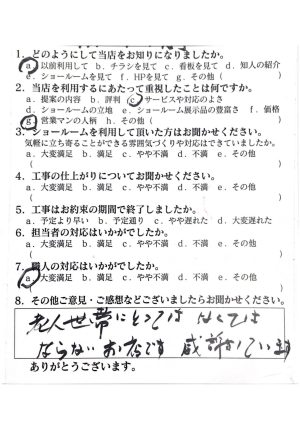 1. どのようにして当店をお知りになりましたか。
a. 以前利用して b. チラシを見て c. 看板を見て d. 知人の紹介
e. ショールームを見て f. HPを見て g. その他 ( )
2. 当店を利用するにあたって重視したことは何ですか。
a. 提案の内容 b. 評判 c. サービスや対応のよさ
d. ショールームの立地 e. ショールーム展示品の豊富さ f. 価格
g. 営業マンの人柄 h. その他 ( )
3. ショールームを利用して頂いた方はお聞かせください。
気軽に立ち寄ることができる雰囲気づくりや対応はできていましたか。
a. 大変満足 b. 満足 c. やや不満 d. 不満 e. その他
( )
4. 工事の仕上がりについてお聞かせください。
a. 大変満足 b. 満足 c. やや不満 d. 不満 e. その他
( )
5. 工事はお約束の期間で終了しましたか。
a. 予定より早い b. 予定通り c. やや遅れた d. 大変遅れた
6. 担当者の対応はいかがでしたか。
a. 大変満足 b. 満足 c. やや不満 d. 不満 e. その他
( )
7. 職人の対応はいかがでしたか。
a. 大変満足 b. 満足 c. やや不満 d. 不満 e. その他
( )
8. その他ご意見・ご感想などございましたらお聞かせください。
老人世帯にとっては なくては
ならないお店です 感謝しています
ありがとうございます。